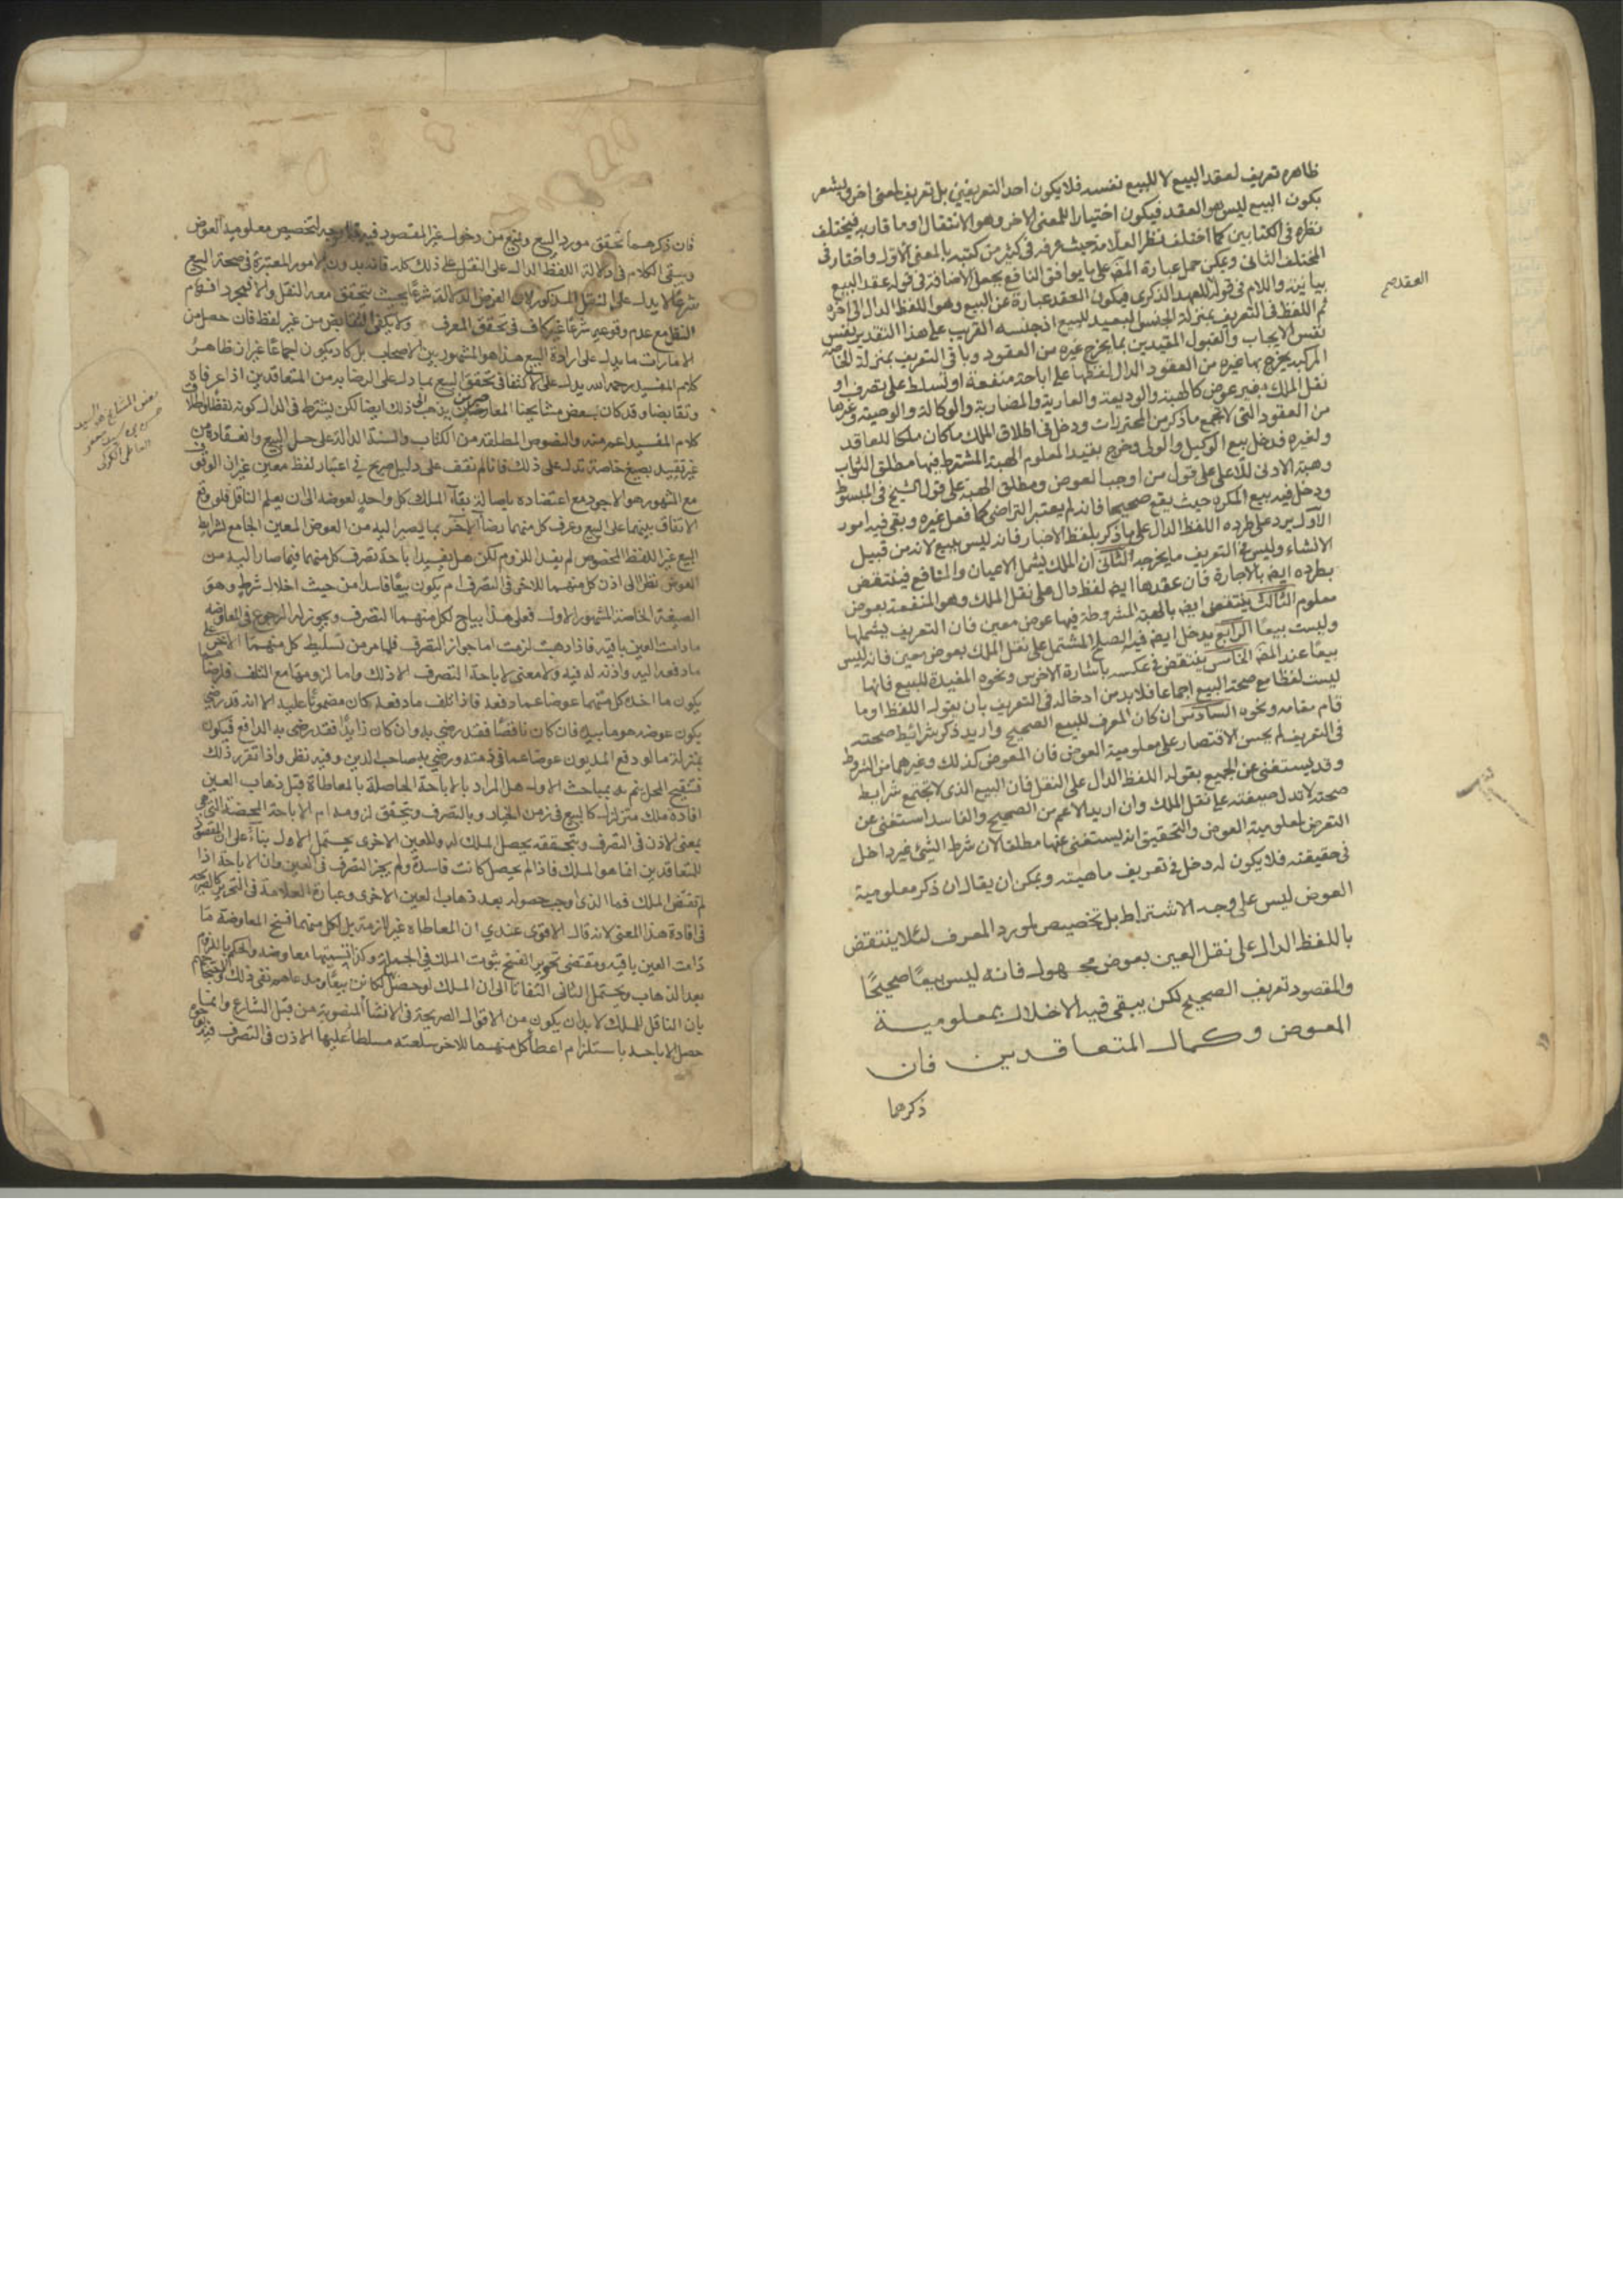 ظاهره تعريف لعقد البيع لا للبيع نفسه فلا يكون احد التعريفين بل تعريف لمعنى اخر ويشعر
بكون البيع ليس هو العقد فيكون اختيارا للمعنى الاخر وهو الانتقال او ما قاربه فيختلف
نظره في الكتابين كما اختلف نظر العلامة حيث عرفه في كثير من كتبه بالمعنى الاول واختار في
المختلف الثاني ويمكن حمل عبارة المصَ على ما يوافق النافع بجعل الاضافة في قوله عقد البيع
بيانية واللام في قوله للعهد الذكرى فيكون العقد عبارة عن البيع وهو اللفظ الدال الى اخره
ثم اللفظ في التعريف بمنزلة الجنس البعيد للبيع اذ جنسه القريب على هذا التقدير نفس
نفس الايجاب والقبول المقيدين بما يخرج غيره من العقود وباقي التعريف بمنزلة الخاصة
المركبة يخرج بها غيره من العقود الدال لفظها على اباحة منفعة او تسلط على تصرف او
نقل الملك بغير عوض كالهبة والوديعة والعارية والمضاربة والوكالة والوصية وغيرها
من العقود التي لا تجمع ما ذكر من المحترزات ودخل في اطلاق الملك ما كان ملكا للعاقد
ولغيره فدخل بيع الوكيل والولى وخرج بقيد المعلوم الهبة المشترط فيها مطلق الثواب
وهبة الادنى للاعلى على قول من اوجب العوض ومطلق الهبة على قول الشيخ في المبسوط
ودخل فيه بيع المكره حيث يقع صحيحا فانه لم يعتبر التراضى كما فعل غيره وبقى فيه امور
الاول يرد على طرده اللفظ الدال على ما ذكر بلفظ الاخبار فانه ليس ببيع لانه من قبيل
الانشاء وليس في التعريف ما يخرجه الثاني ان الملك يشمل الاعيان والمنافع فينتقض
بطرده ايضَ بالاجارة فان عقدها ايضَ لفظ دال على نقل الملك وهو المنفعة بعوض
معلوم الثالث ينتقض ايضَ بالهبة المشروطة فيها عوض معين فان التعريف يشملها
وليست بيعًا الرابع يدخل ايضَ فيه الصلح المشتمل على نقل الملك بعوض معين فانه ليس
بيعًا عند المصَ الخامس ينتقض في عكسه باشارة الاخرس ونحوه المفيدة للبيع فانها
ليست لفظا مع صحة البيع اجماعا فلا بد من ادخاله في التعريف بان يقول اللفظ او ما
قام مقامه ونحوه السادس ان كان المعرف للبيع الصحيح واريد ذكر شرائط صحته
في التعريف لم يحسن الاقتصار على معلومية العوض فان المعوض كذلك وغيرهما من الشروط
وقد يستغنى عن الجميع بقوله اللفظ الدال على النقل فان البيع الذى لا تجتمع شرايط
صحته لا تدل صيغته على نقل الملك وان اريد الاعم من الصحيح والفاسد استغنى عن
التعرض لمعلومية العوض والتحقيق انه يستغنى عنها مطلقا لان شرط الشيئ غير داخل
في حقيقته فلا يكون له دخل في تعريف ماهيته ويمكن ان يقال ان ذكر معلومية
العوض ليس على وجه الاشتراط بل تخصيص لمورد المعرف لئلا ينتقض
باللفظ الدال على نقل العين بعوض مجهول فانه ليس بيعًا صحيحًا
والمقصود تعريف الصحيح لكن يبقى فيه الاخلال بمعلومية
المعوض وكمال المتعاقدين فان
ذكرهما
العقد صح
فان ذكرهما تحقق مورد البيع ويمنع من دخول غير المقصود فيه لتخصيص معلومية العوض
ويبقى الكلام في دلالة اللفظ الدال على النقل على ذلك كله فانه بدون الامور المعتبرة في صحة البيع
شرعًا لا يدل على النقل المذكور لان الغرض الدلالة شرعًا بحيث يتحقق معه النقل والا فمجرد افهام
النقل مع عدم وقوعه شرعًا غير كاف في تحقق المعرف ولا يكفى التقابض من غير لفظ فان حصل من
الامارات ما يدل على ارادة البيع هذا هو المشهور بين الاصحاب بل كاد يكون اجماعًا غير ان ظاهر
كلام المفيد رحمه الله يدل على الاكتفا في تحقق البيع بما دل على الرضا به من المتعاقدين اذا عرفاه
وتقابضا وقد كان بعض مشايخنا المعاصرين يذهب الى ذلك ايضا لكن يشترط في الدال كونه لفظا واطلاق
كلام المفيد اعم منه والنصوص المطلقة من الكتاب والسنة الدالة على حل البيع وانعقاده من
غير تقييد بصيغ خاصة تدل على ذلك فانا لم نقف على دليل صريح في اعتبار لفظ معين غير ان الوقوف
مع المشهور هو الاجود مع اعتضاده باصالة بقآء الملك كل واحد لعوضه الى ان يعلم الناقل فلو وقع
الاتفاق بينهما على البيع وعرف كل منهما رضآ الآخر بما يصير اليه من العوض المعين الجامع لشرايط
البيع غير اللفظ المخصوص لم يفد اللزوم لكن هل يفيد اباحة تصرف كل منهما فيما صار اليه من
العوض نظرا الى اذن كل منهما للاخر في التصرف ام يكون بيعًا فاسدا من حيث اخلال شرطه وهو
الصيغة الخاصة المشهور الاول فعلى هذا يباح لكل منهما التصرف ويجوز له الرجوع في المعاوضة
ما دامت العين باقية فاذا ذهبت لزمت اما جواز التصرف فلما مر من تسليط كل منهما الاخر على
ما دفعه اليه واذنه له فيه ولا معنى لاباحة التصرف الا ذلك واما لزومها مع التلف فلرضاهما
بكون ما اخذه كل منهما عوضا عما دفعه فاذا تلف ما دفعه كان مضمونًا عليه الا انه قد رضى
بكون عوضه هو ما بيده فان كان ناقصًا فقد رضى به وان كان زايدًا فقد رضى به الدافع فيكون
بمنزلة ما لو دفع المديون عوضا عما في ذمته ورضي به صاحب الدين وفيه نظر واذا تقرر ذلك
فتنقيح المحل يتم بمباحث الاول هل المراد بالاباحة الحاصلة بالمعاطاة قبل ذهاب العين
افادة ملك متزلزل كالبيع في زمن الخيار وبالتصرف يتحقق لزومه ام الاباحة المحضة التي هي
بمعنى الاذن في التصرف وبتحققه يحصل الملك له وللعين الاخرى يحتمل الاول بناءً على ان المقصود
للمتعاقدين انما هو الملك فاذا لم يحصل كانت فاسدة ولم يجز التصرف في العين وان الاباحة اذا
لم تقتض الملك فما الذى اوجب حصوله بعد ذهاب العين الاخرى وعبارة العلامة في التحرير كالصريحة
في افادة هذا المعنى لانه قال الاقوى عندي ان المعاطاة غير لازمة بل لكل منهما فسخ المعاوضة ما
دامت العين باقية ومقتضى تجويز الفسخ ثبوت الملك في الجملة وكذا تسميتها معاوضه والحكم باللزوم
بعد الذهاب ويحتمل الثانى التفاتا الى ان الملك لو حصل لكانت بيعًا
بان الناقل للملك لا بد ان يكون من الاقوال الصريحة في الانشآء المنصوبة من قبل الشارع وانما
حصل الاباحة باستلزام اعطآء كل منهما للاخر سلعته مسلطا عليها الاذن في التصرف فيها
بعض المشايخ هو السيد